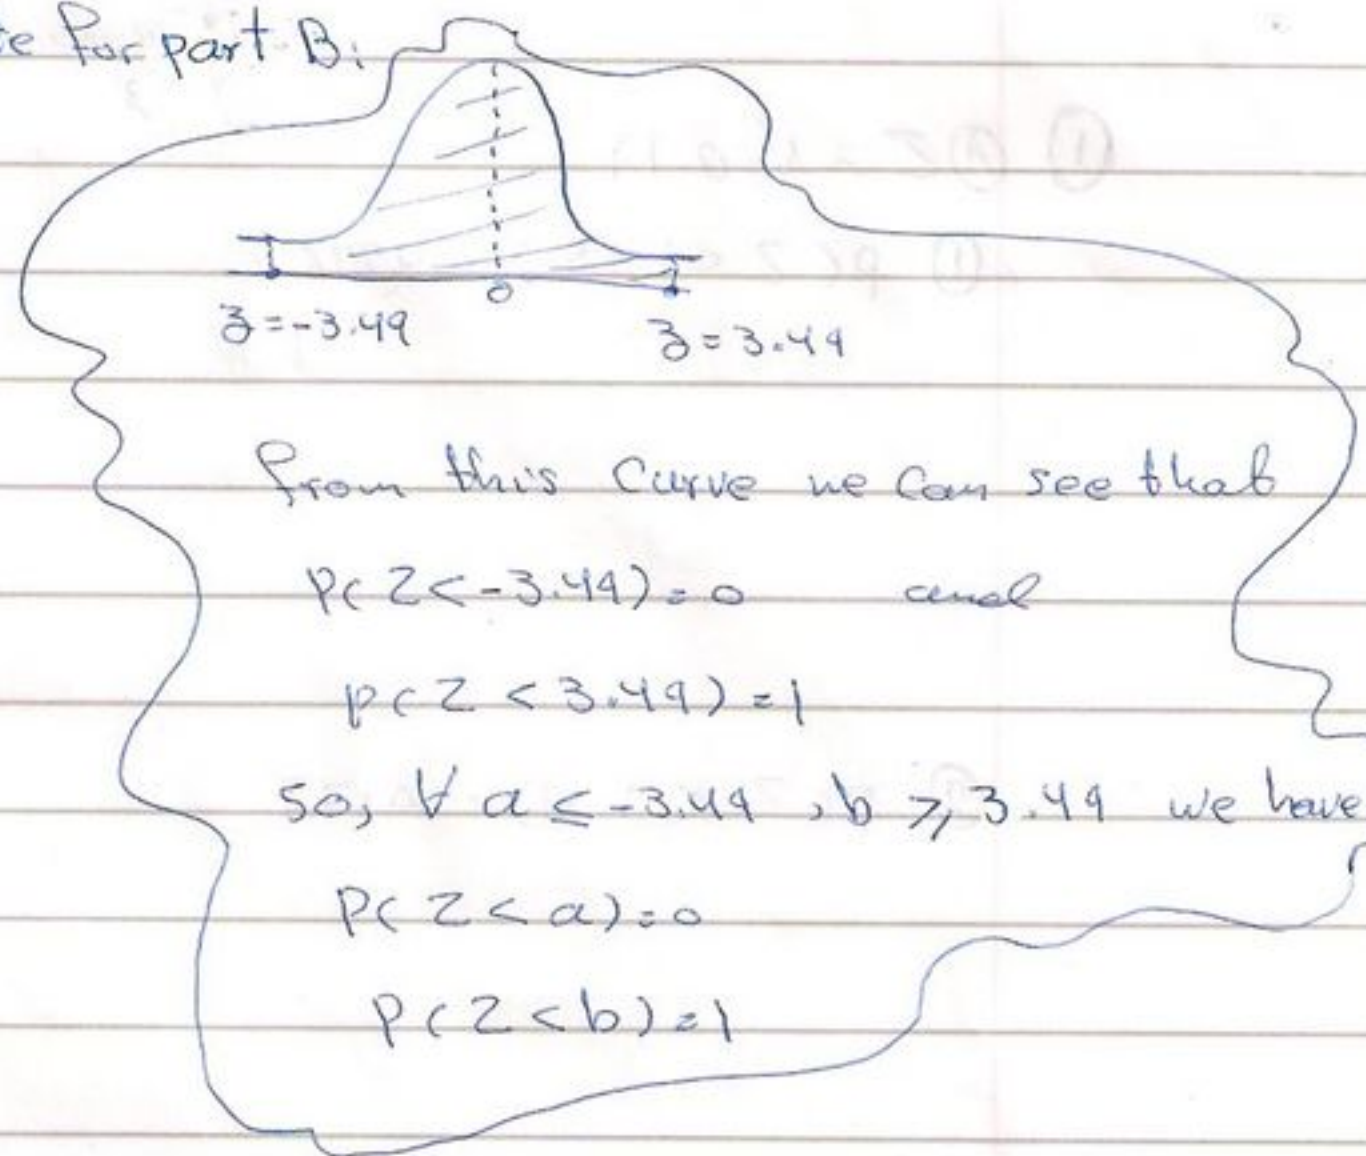 te for part B:
0
z=-3.49
z=3.49
from this curve we can see that
P(Z<-3.49)=0 and
P(Z<3.49)=1
so, ∀ a ≤ -3.49, b ≥ 3.49 we have
P(Z<a)=0
P(Z<b)=1